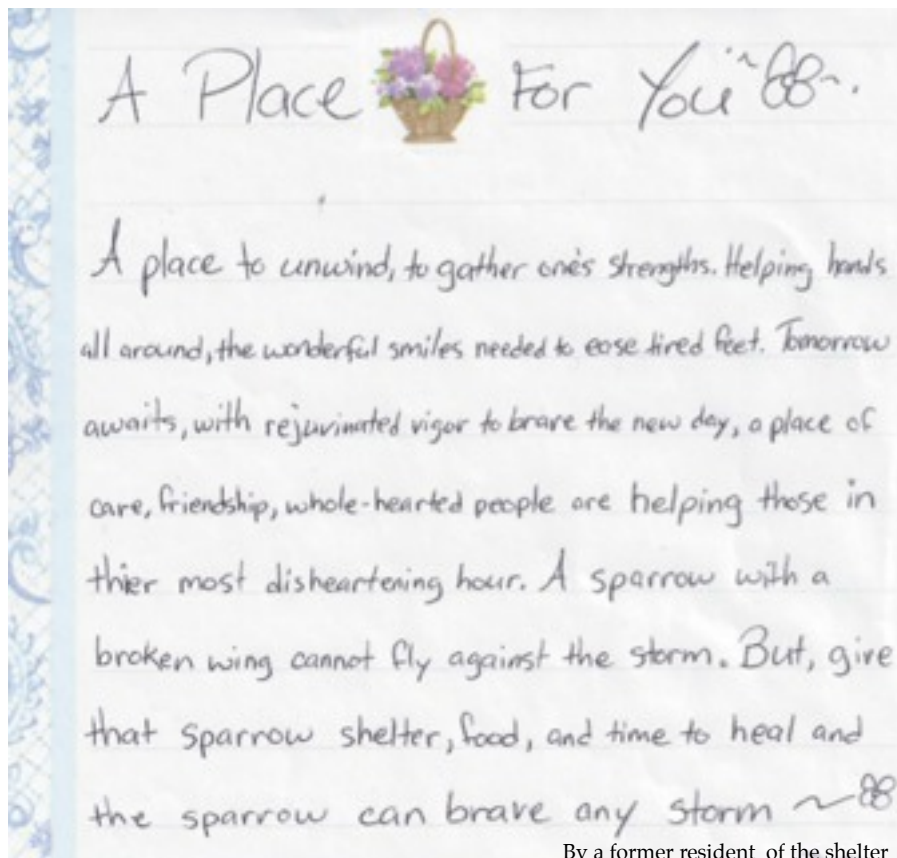 A Place For You
A place to unwind, to gather one's strengths. Helping hands
all around, the wonderful smiles needed to ease tired feet. Tomorrow
awaits, with rejuvinated vigor to brave the new day, a place of
care, friendship, whole-hearted people are helping those in
thier most disheartening hour. A sparrow with a
broken wing cannot fly against the storm. But, give
that sparrow shelter, food, and time to heal and
the sparrow can brave any storm
By a former resident of the shelter